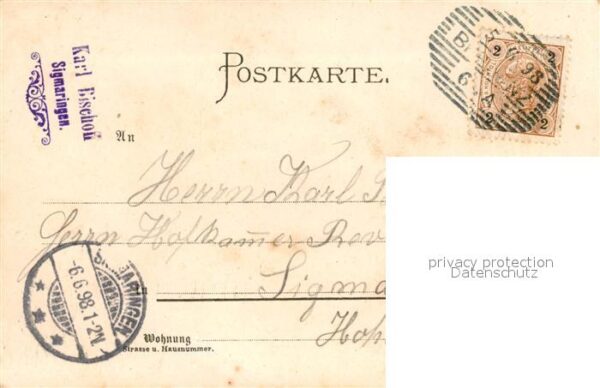 Karl Bischoff
Sigmaringen.
POSTKARTE.
2 2
2 2
98
An
Herrn Karl
Herrn Hofkam̅er Rev
Sigma
In
Hoh
SIGMARINGEN
-6.6.98.1-2N.
Wohnung
Strasse u. Hausnummer.
privacy protection
Datenschutz